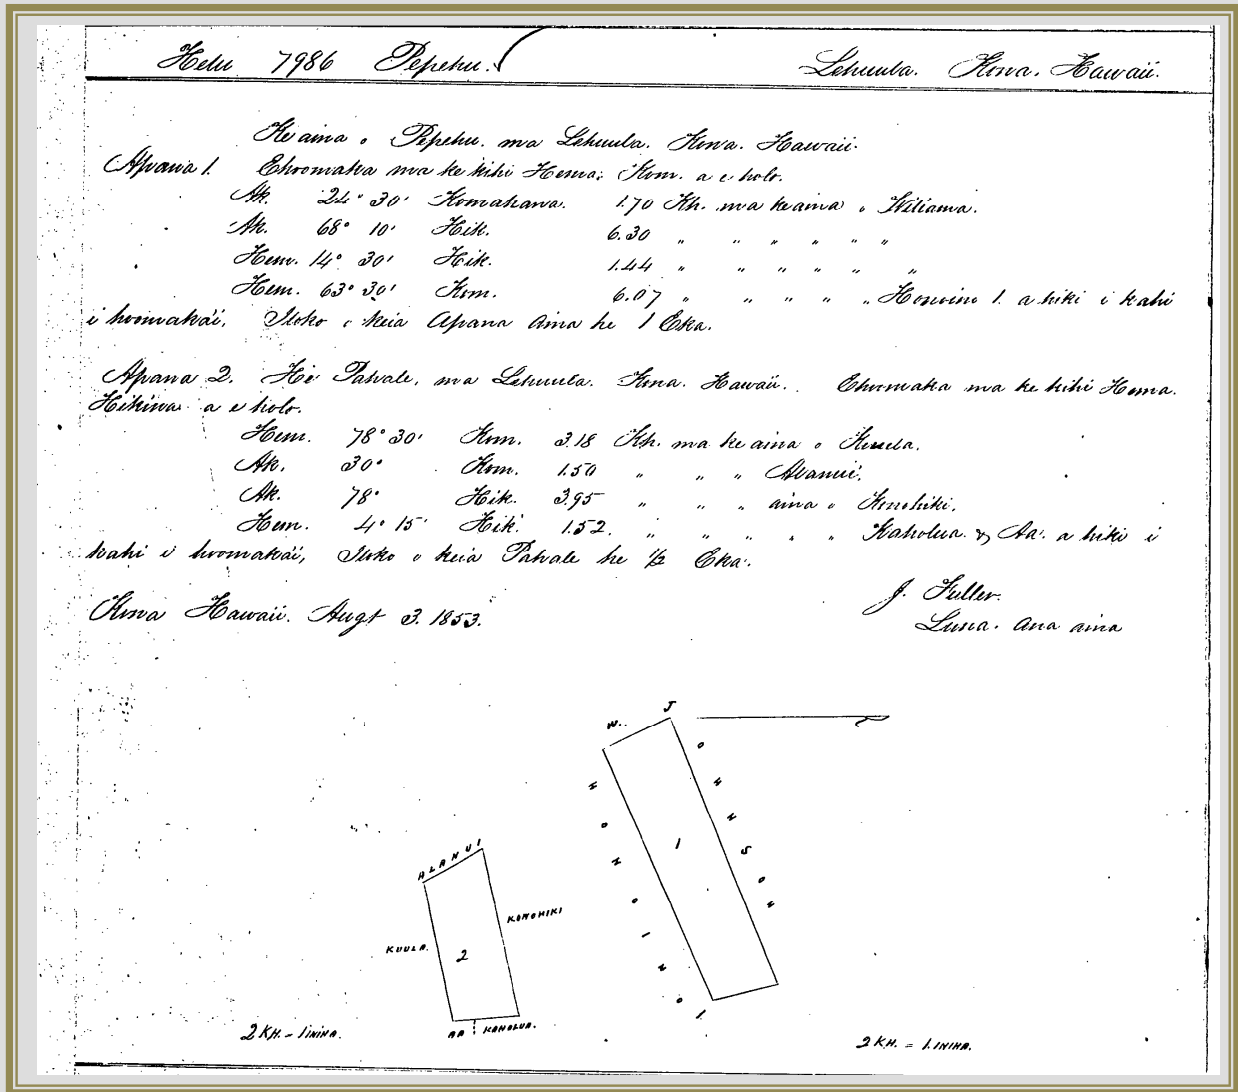 Helu 7986 Pepehu. Lehuula. Kona. Hawaii.
Ke aina o Pepehu. ma Lehuula. Kona. Hawaii.
Apana 1. Ehoomaka ma ke kihi Hema, Kom. a e holo.
Ak. 24° 30' Komohana. 1.70 Kh. ma ke aina o Wiliama.
Ak. 68° 10' Hik. 6.30 " " " " " "
Hem. 14° 30' Hik. 1.44 " " " " " "
Hem. 63° 30' Kom. 6.07 " " " " " Honoino 1. a hiki i kahi
i hoomakai, Iloko o keia Apana Aina he 1 Eka.
Apana 2. He Pahale, ma Lehuula. Kona. Hawaii. Ehoomaka ma ke kihi Hema.
Hikina a e holo.
Hem. 78° 30' Kom. 3.18 Kh. ma ke aina o Kuula.
Ak. 30° Kom. 1.50 " " " Alanui.
Ak. 78° Hik. 3.95 " " " aina o Konohiki.
Hem. 4° 15' Hik. 1.52. " " " " " Kaholua. & Aa. a hiki i
kahi i hoomakai, Iloko o keia Pahale he 1/2 Eka.
Kona Hawaii. Augt 3. 1853.
J. Fuller.
Luna. Ana aina
W. JOHNSON
HONOINO 1
1
ALANUI
KONOHIKI
KUULA.
2
AA KAHOLUA.
2 KH. = 1 INIHA.
2 KH. = 1. INIHA.